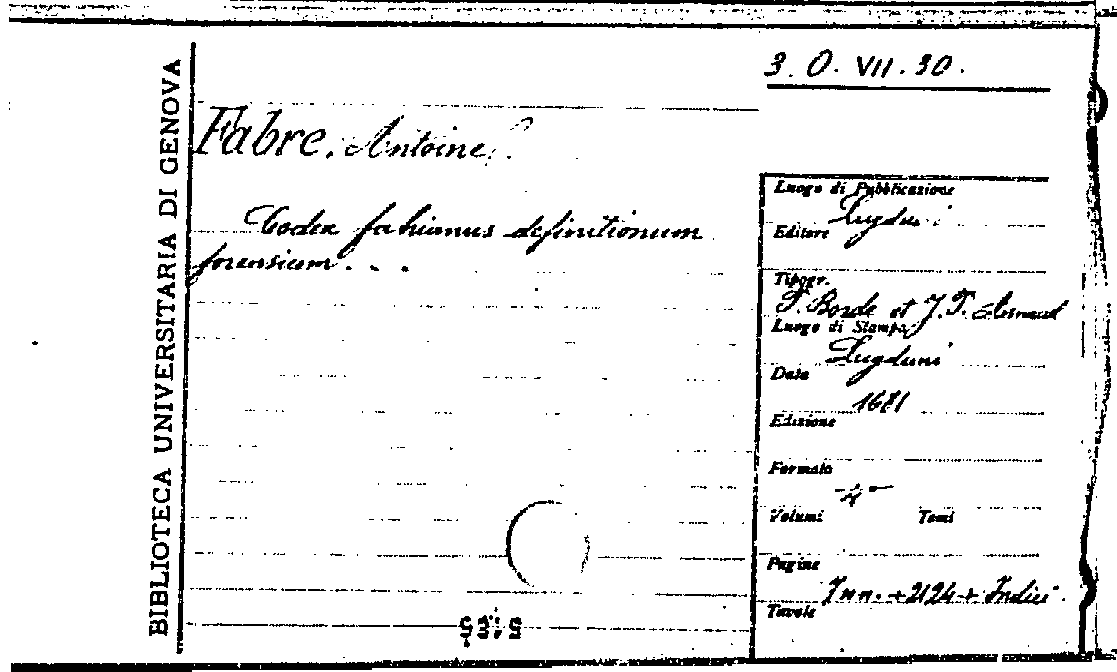 BIBLIOTECA UNIVERSITARIA DI GENOVA
3. O. VII. 30.
Fabre, Antoine.
Codex fabianus definitionum
forensium...
Luogo di Pubblicazione
Lugduni
Editore
Tipogr.
P. Borde et J. P.
Luogo di Stampa
Lugduni
Data
1681
Edizione
Formato
4°
Volumi Tomi
Pagine
+ Indici
Tavole